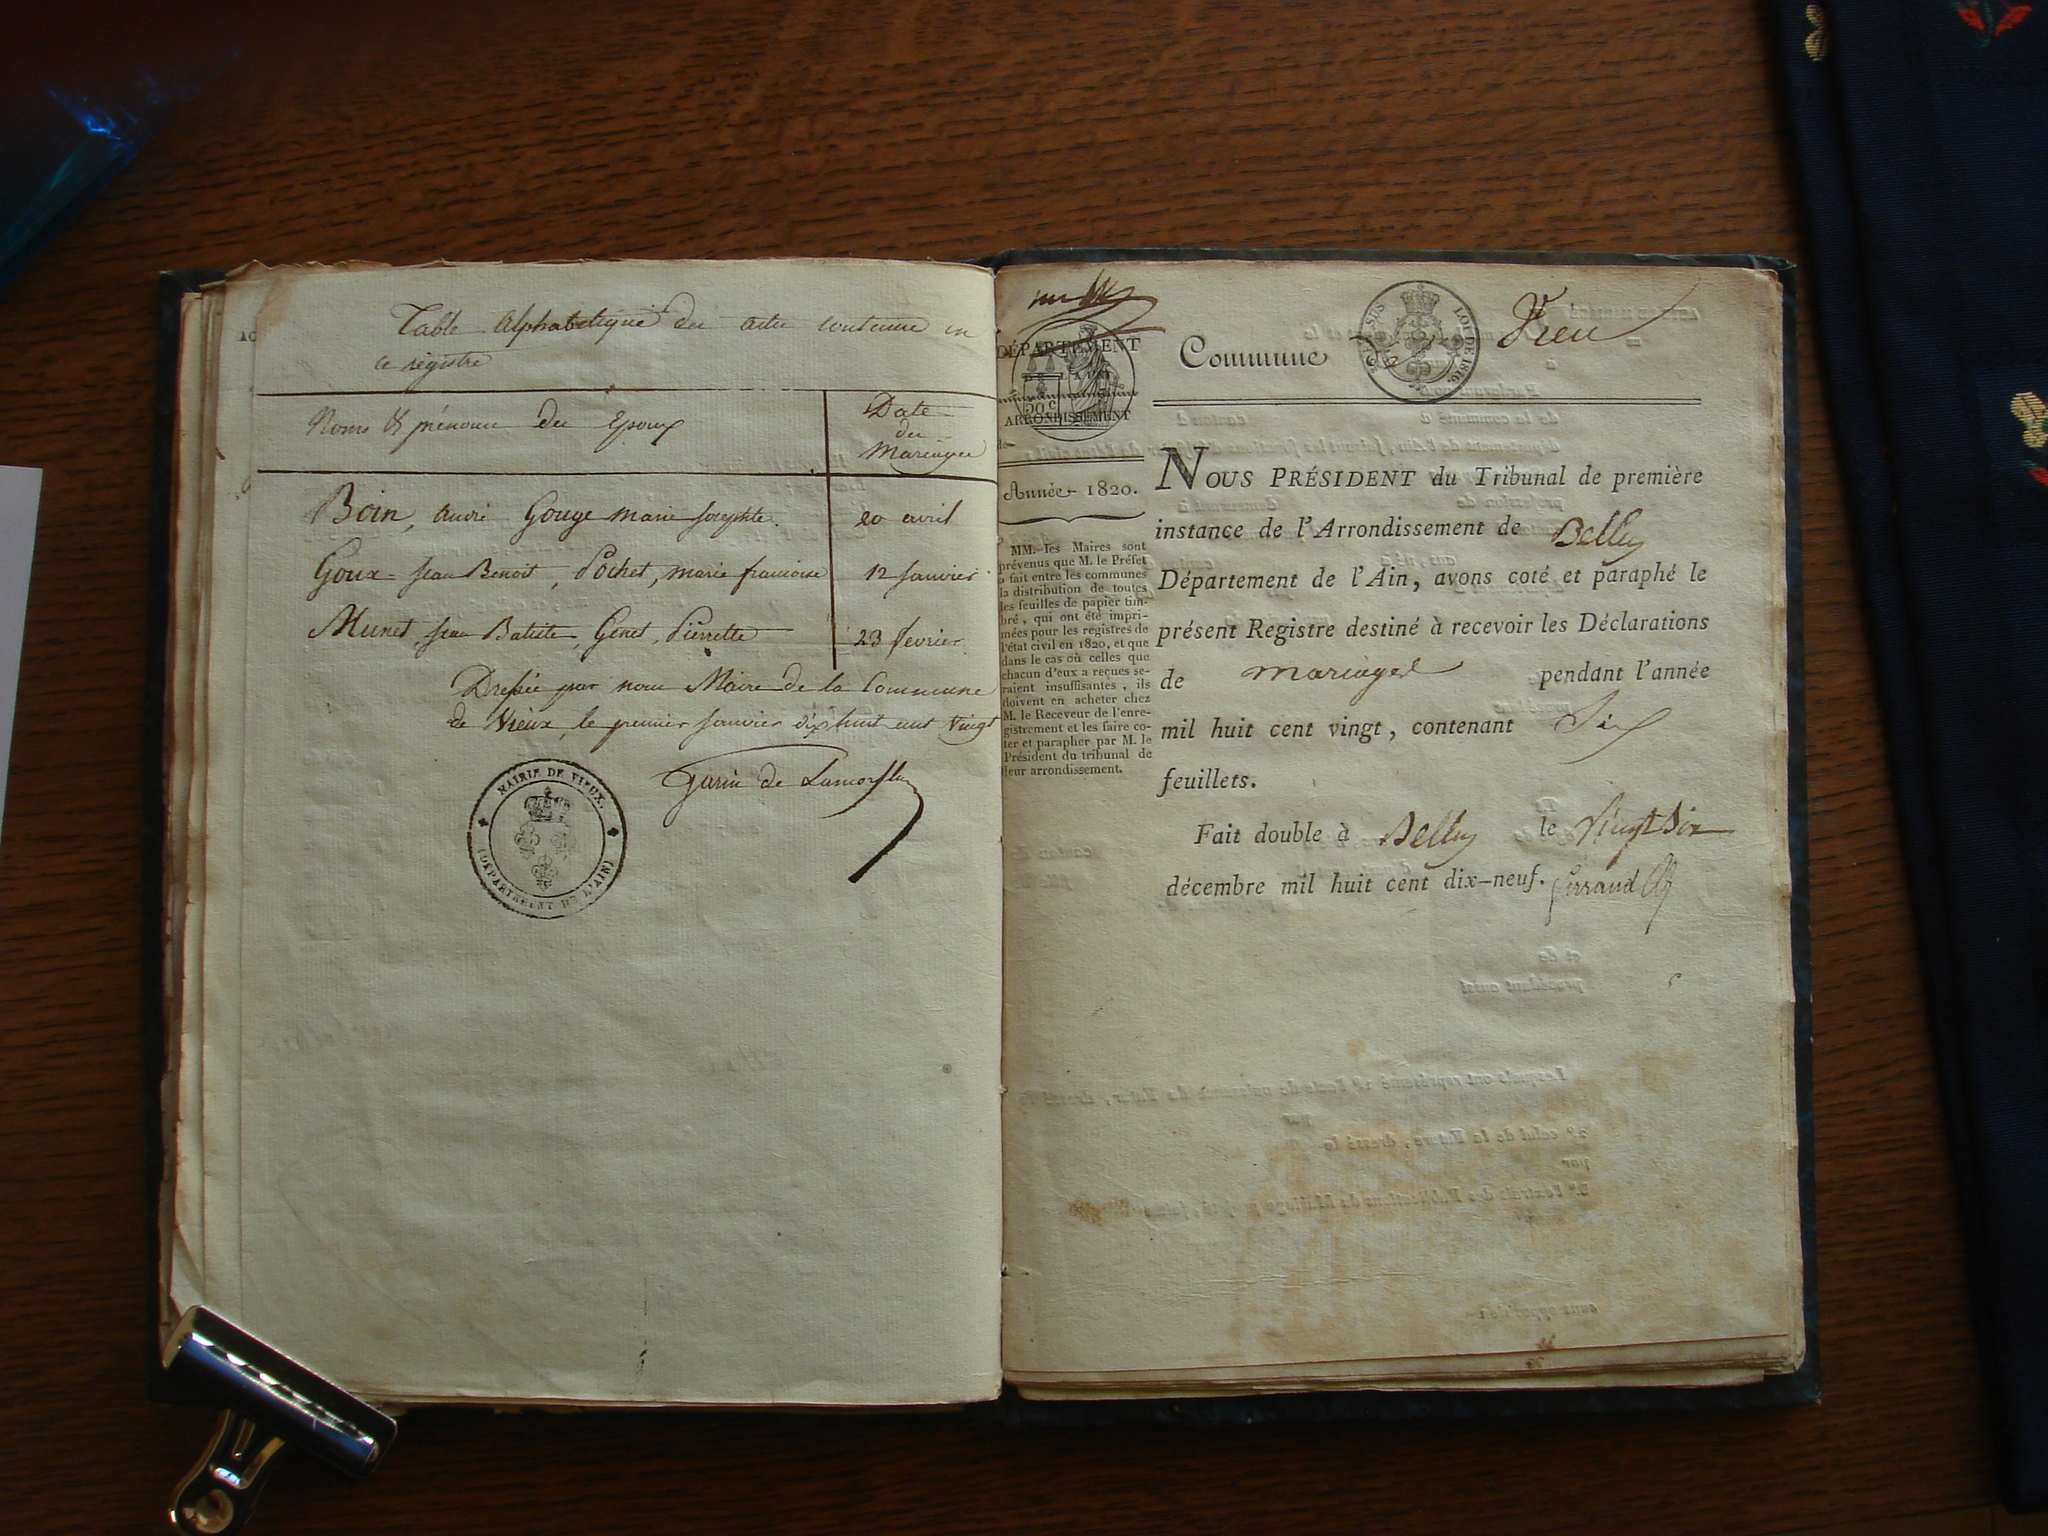 Table Alphabetique des actes contenus en
ce régistre
Noms & prénoms des Epoux
Date
des
Mariages
Boin, André Gouge marie josephte. 20 avril
Goux jean Benoit, Pochet, marie francoise 12 janvier
Munet, jean Batiste, Genet, Pierrette 23 fevrier
Dressée par nous Maire de la Commune
de Vieux, le premier janvier dix huit cent vingt
Garin de
MAIRIE DE VIEUX.
(DÉPARTEMENT DE L'AIN)
DÉPARTEMENT
50 c
ARRONDISSEMENT
de
Année 1820.
MM. les Maires sont
prévenus que M. le Préfet
a fait entre les communes
la distribution de toutes
les feuilles de papier tim-
bré, qui ont été impri-
mées pour les registres de
l'état civil en 1820, et que
dans le cas où celles que
chacun d'eux a reçues se-
raient insuffisantes, ils
doivent en acheter chez
M. le Receveur de l'enre-
gistrement et les faire co-
ter et parapher par M. le
Président du tribunal de
leur arrondissement.
Commune d Vieu
LOI DE 1816.
NOUS PRÉSIDENT du Tribunal de première
instance de l'Arrondissement de Belley
Département de l'Ain, avons coté et paraphé le
présent Registre destiné à recevoir les Déclarations
de mariages pendant l'année
mil huit cent vingt, contenant Six
feuillets.
Fait double à Belley le Vingt Six
décembre mil huit cent dix-neuf. Ferrand